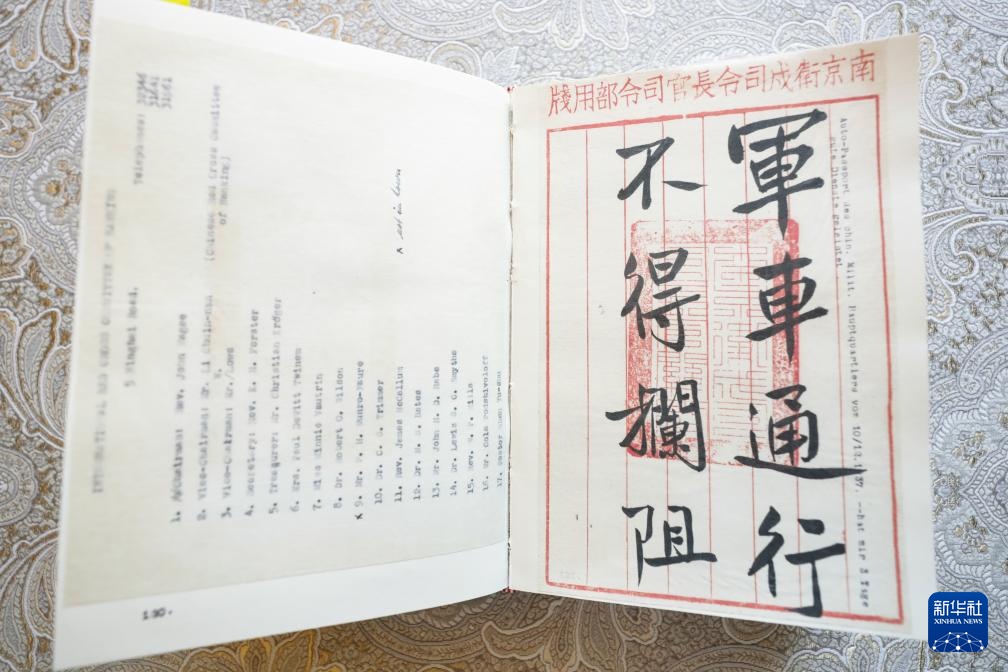 Telephones:
5 Ninghai Road.
1. Chairman: Rev. John Magee
2. Vice-Chairman: Mr. Li Chuin-nan (Chinese Red Cross Committee
of Nanking)
3. Vice-Chairman: Mr. Lowe
4. Secretary: Rev. E. H. Forster
5. Treasurer: Mr. Christian Kröger
6. Mrs. Paul DeWitt Twinem
7. Miss Minnie Vautrin
8. Dr. Robert O. Wilson
x 9. Mr. P. H. Munro-Faure
10. Dr. C. S. Trimmer
11. Rev. James McCallum
12. Dr. M. S. Bates
13. Mr. John H. D. Rabe
14. Dr. Lewis S. C. Smythe
15. Rev. W. P. Mills
16. Mr. Cola Podshivoloff
17. Pastor Shen Yu-shu
x not in town
190.
南京衛戍司令長官司令部用牋
軍車通行
不得攔阻
Auto-Passport des chin. Milit. Hauptquartiers vom 10/12.1937. --hat mir 3 Tage
gute Dienste geleistet
新华社
XINHUA NEWS